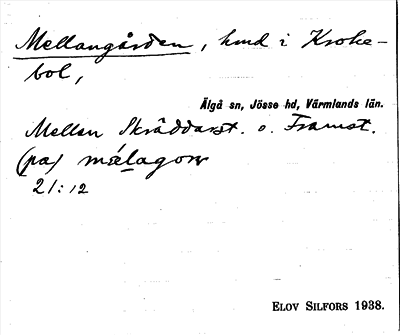 Mellangården, hmd i Kroke-
bol,
Älgå sn, Jösse hd, Värmlands län.
Mellan Skräddarst. o. Framst.
(pa) málagọrn
21:12
ELOV SILFORS 1938.